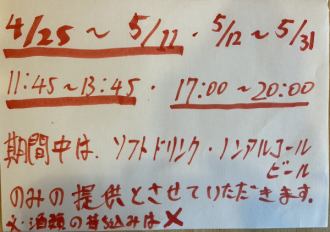 4/25 ～ 5/11 ・ 5/12 ～ 5/31
11:45～13:45 ・ 17:00～20:00
期間中は、ソフトドリンク・ノンアルコール
ビール
のみの提供とさせていただきます。
※酒類の持込みは×